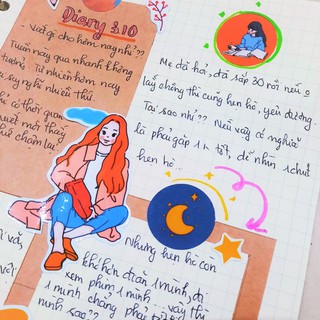 Diary 3.10
- Viết gì cho hôm nay nhỉ??
Tuần này qua nhanh không
tưởng. Tự nhiên hôm nay
suy nghĩ nhiều thứ.
có thời gian
mới thấy
chậm lại
Mẹ đã hỏi, đã sắp 30 rồi nếu o
lấy chồng thì cũng hẹn hò, yêu đương.
Tại sao nhỉ?? Nếu vậy có nghĩa
là phải gặp 1 tốt, dễ nhìn 1 chút
hẹn hò...
Nhưng hẹn hò còn
khó hơn 1 mình, đi
xem phim 1 mình ... vậy thì
1 mình chẳng phải
mình sao??